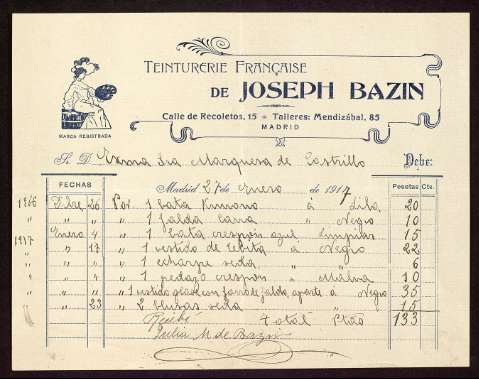 TEINTURERIE FRANÇAISE
DE JOSEPH BAZIN
Calle de Recoletos, 15 Talleres: Mendizábal, 85
MADRID
MARCA REGISTRADA
S. D. Exma Sra Marquesa de Castrillo Debe:
FECHAS Madrid 27 de Enero de 1917 Pesetas Cts.
1916 Dbre 26 Por 1 bata Kimono á Lila 20
" " " " 1 falda lana " Negro 10
1917 Enero 4 " 1 bata crespón azul Limpiar 15
" " 17 " 1 vestido de á Negro 22
" " " " 1 echarpe seda " " 6
" " " " 1 pedazo crespón " Malva 10
" " " " 1 vestido con forro de falda aparte á Negro 35
" " 23 " 2 blusas seda " " 15
Recibí Total Ptas 133
Julia M. de Bazin